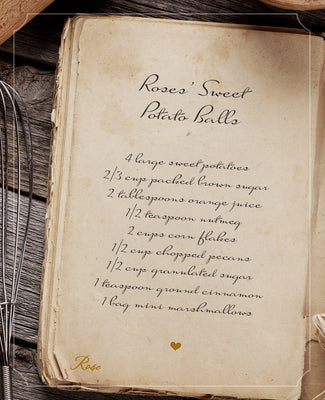 Roses' Sweet
Potato Balls
4 large sweet potatoes
2/3 cup packed brown sugar
2 tablespoons orange juice
1/2 teaspoon nutmeg
2 cups corn flakes
1/2 cup chopped pecans
1/2 cup granulated sugar
1 teaspoon ground cinnamon
1 bag mini marshmallows
Rose